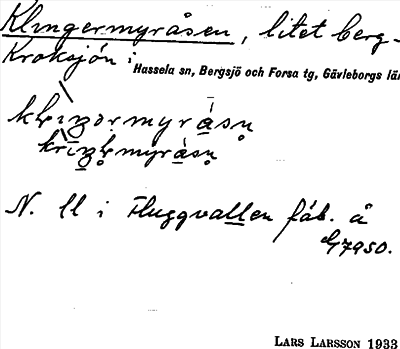 Klingermyråsen, litet berg-
Kroksjön i
Hassela sn, Bergsjö och Forsa tg, Gävleborgs län
N. ll i Fluggvallen fäb. å
G7950.
LARS LARSSON 1933